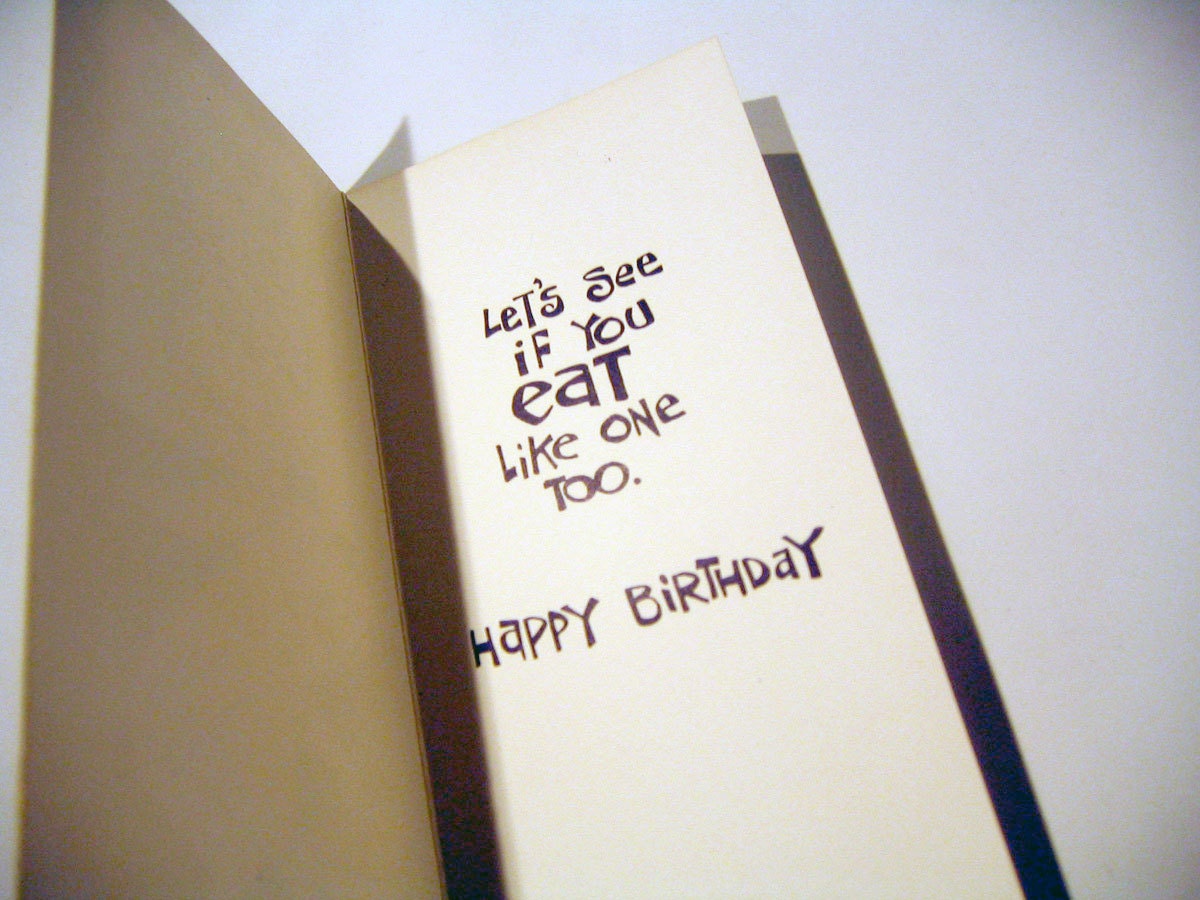 LeT'S See
iF YOU
eaT
LiKe ONe
TOO.
HaPPY BiRTHDaY